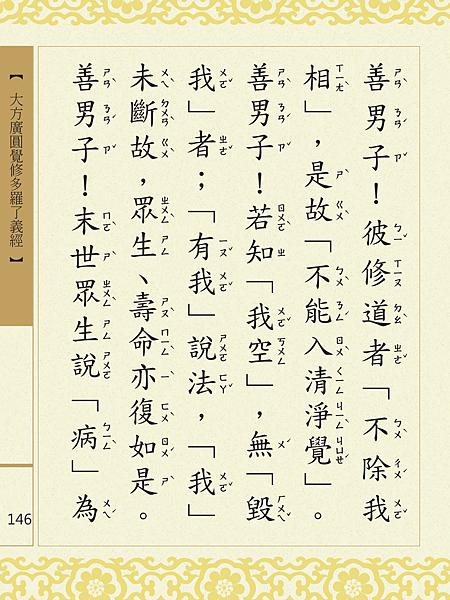 善男子！彼修道者「不除我
相」，是故「不能入清淨覺」。
善男子！若知「我空」，無「毀
我」者；「有我」說法，「我」
未斷故，眾生、壽命亦復如是。
善男子！末世眾生說「病」為
【大方廣圓覺修多羅了義經】
146